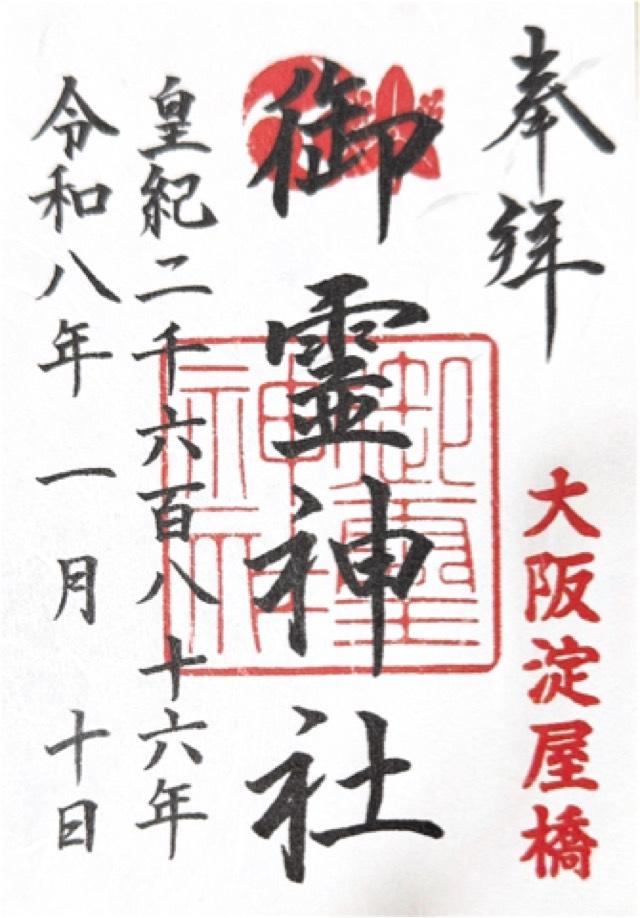 奉拝
大阪淀屋橋
御霊神社
御霊神社
皇紀二千六百八十六年
令和八年 一月 十日